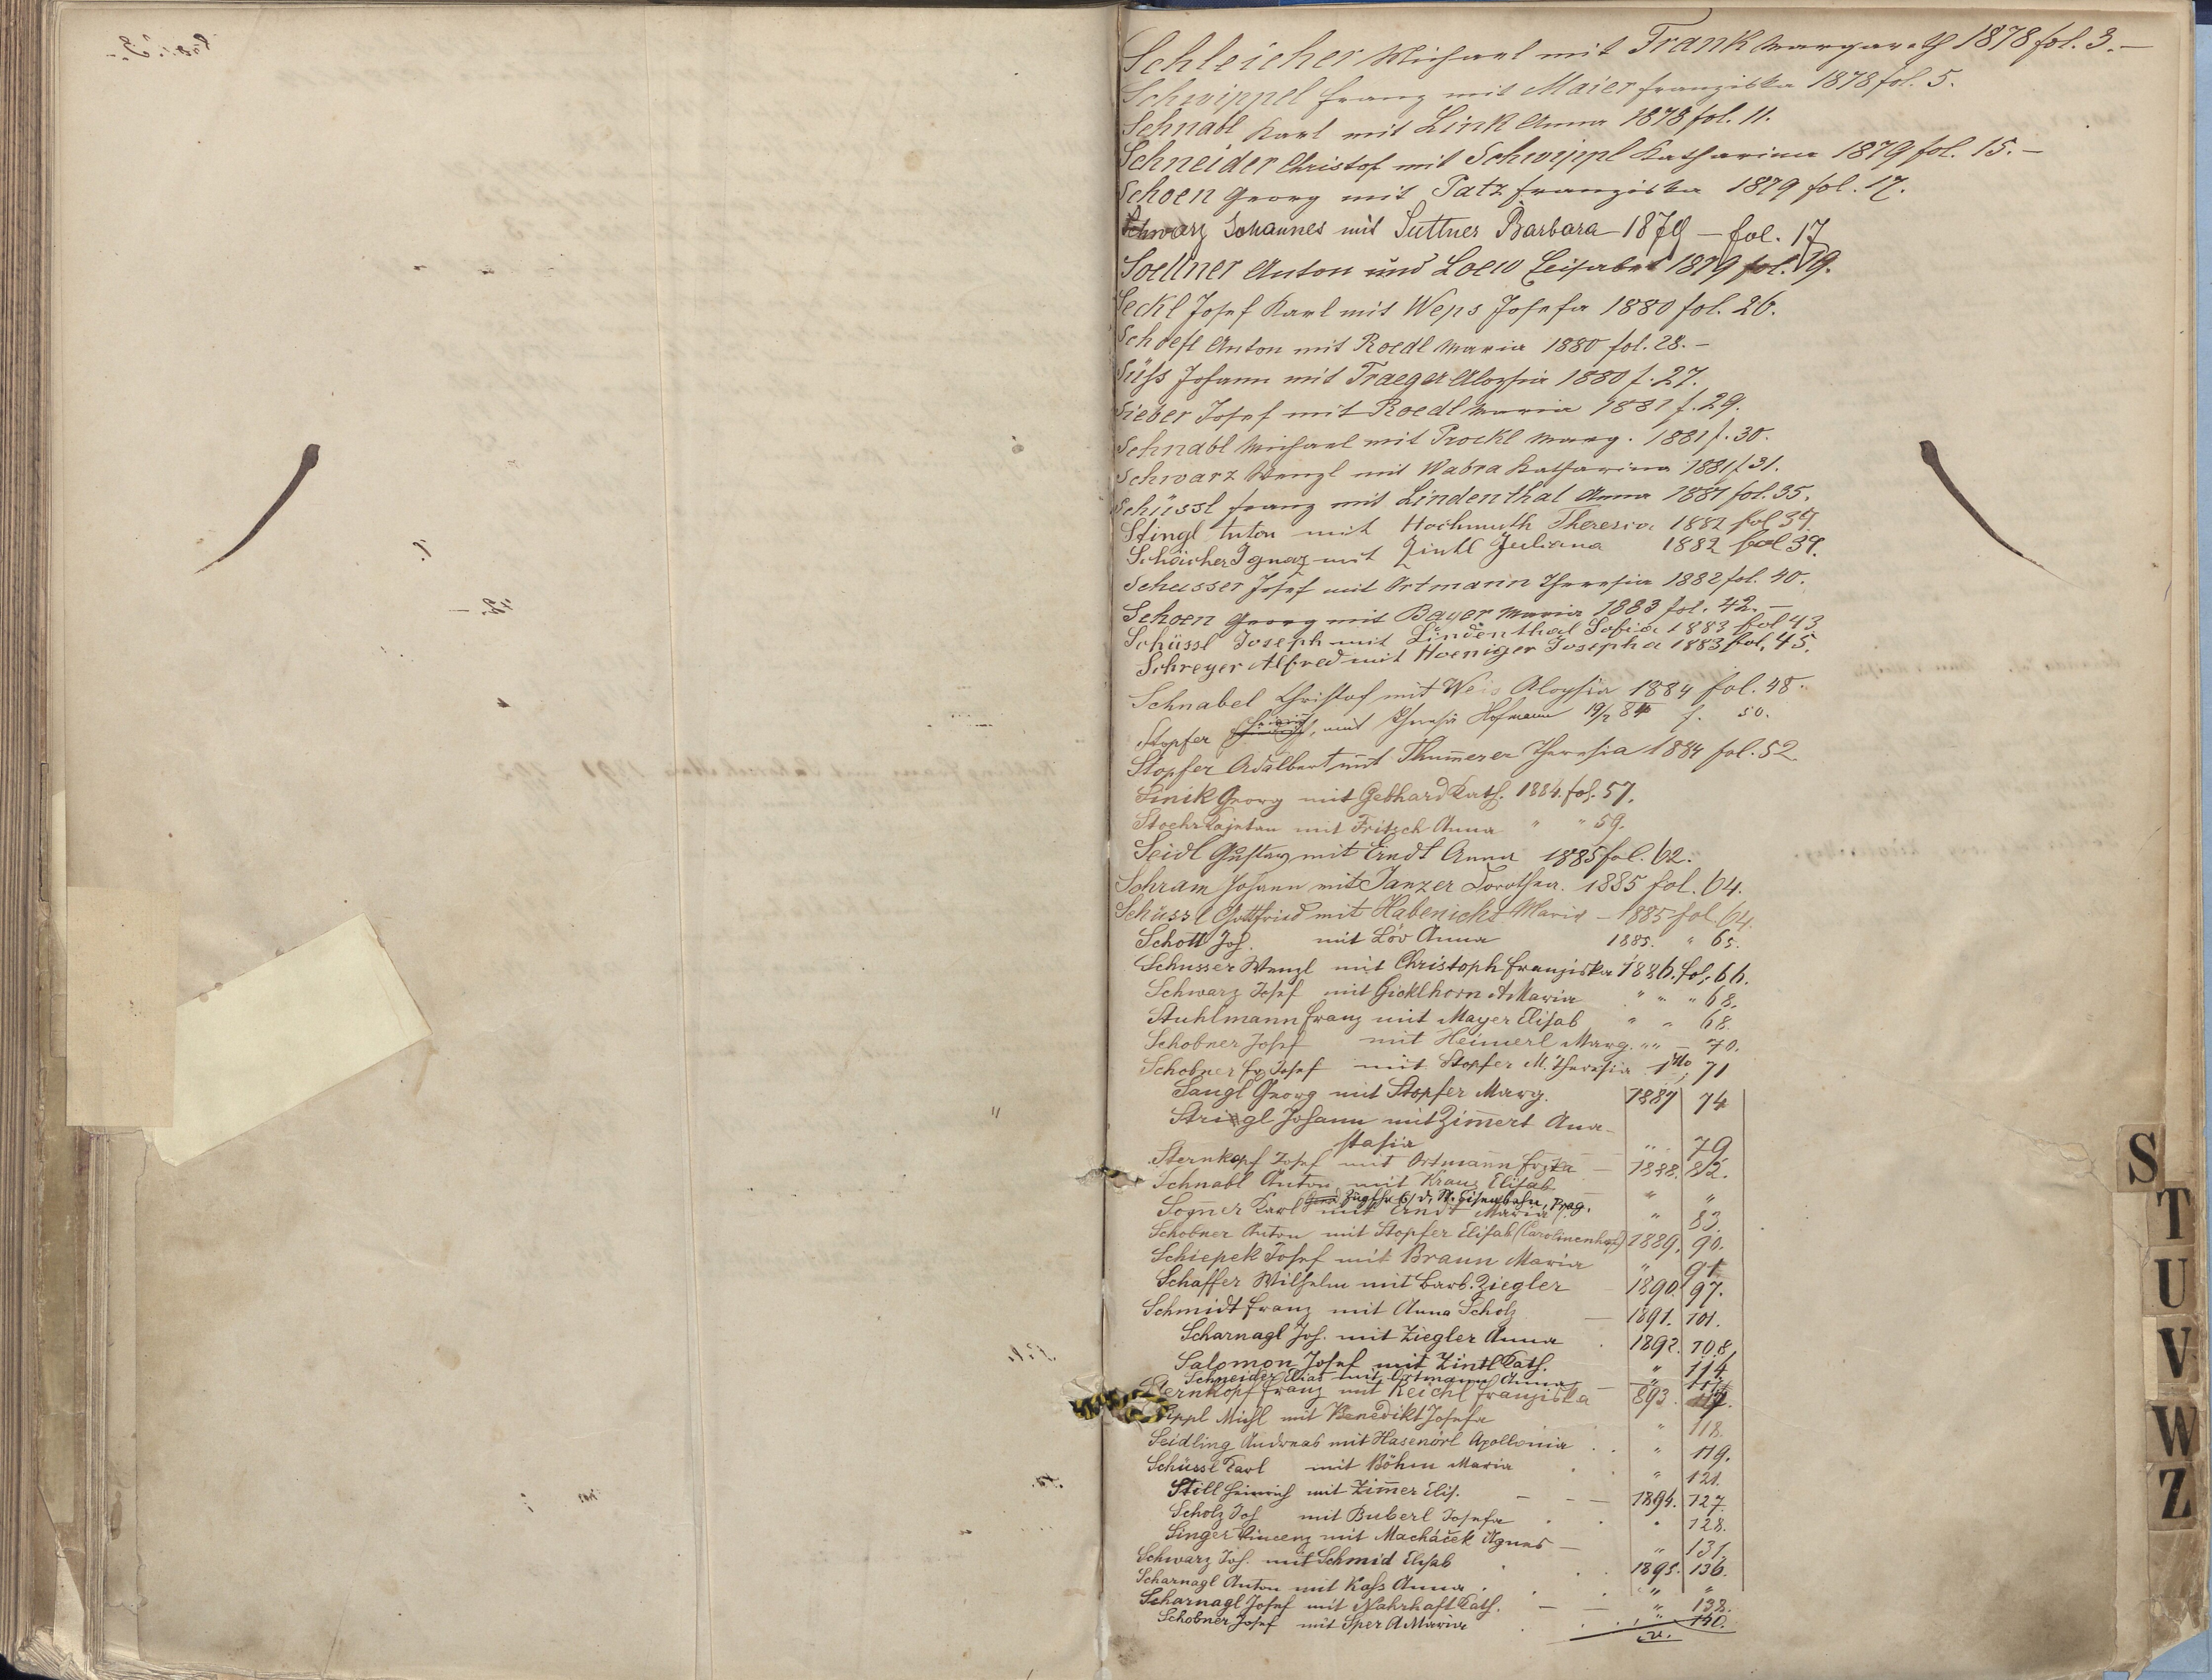 Schleicher Michael mit Frank Margareth 1878 fol. 3.—
Schwippel Franz mit Maier Franziska 1878 fol. 5.
Schnabl Karl mit Link Anna 1878 fol. 11.
Schneider Christof mit Schwippl Katharina 1879 fol. 15.—
Schoen Georg mit Patz Franziska 1879 fol. 17.
Schwarz Johannes mit Suttner Barbara 1879 — fol. 17
Soellner Anton und Loew Elisabet 1879 fol. 19.
Seckl Josef Karl mit Weps Josefa 1880 fol. 26.
Schoefl Anton mit Roedl Maria 1880 fol. 28.—
Süss Johann mit Traeger Aloysia 1880 f. 27.
Sieber Josef mit Roedl Maria 1881 f. 29.
Schnabl Michael mit Prockl Marg. 1881 f. 30.
Schwarz Wenzl mit Wabra Katharina 1881 f 31.
Schüssl Franz mit Lindenthal Anna 1881 fol. 35.
Stingl Anton mit Hochmuth Theresia 1882 fol 37.
Ignaz mit Zintl Juliana 1882 fol 39.
Schusser Josef mit Ortmann Theresia 1882 fol. 40.
Schoen Georg mit Bayer Maria 1883 fol. 42.—
Schüssl Joseph mit Lindenthal Sofia 1883 fol 43
Schreyer Alfred mit Hoeniger Josepha 1883 fol. 45.
Schnabel Christof mit Weis Aloysia 1884 fol. 48.
Stopfer mit Theresia Hofmann 19/2 84 f. 50.
Stopfer Adalbert mit Thum̄erer Theresia 1884 fol. 52.
Sinik Georg mit Gebhard Kath. 1884. fol. 57.
Stoehr Kajetan mit Fritsch Anna " " 59.
Seidl Gustav mit Erndt Anna 1885 fol. 62.
Schram Johann mit Janzer Dorothea. 1885 fol. 64.
Schüssl Gottfried mit Habenicht Maria — 1885 fol. 64.
Schott Jos. mit Löv Anna 1885. " 65.
Schusser Wenzl mit Christoph Franziska 1886. fol. 66.
Schwarz Josef mit Gicklhorn A Maria " " " 68.
Stuhlmann Franz mit Mayer Elisab " " 68.
Schobner Josef mit Heimerl Marg. " " — 70.
Schobner Fz Josef mit Stopfer M. Theresia 71
Sangl Georg mit Stopfer Marg. 1887 74
Stringl Johann mit Zim̄ert Ana-
stasia " 79.
Sternkopf Josef mit Ortmann Frzka — 1888. 82.
Schnabl Anton mit Kranz Elisab " "
Zugsfhr b/d. N. Eisenbahn, Prag.
Sogner Karl mit Erndt Maria " 83.
Schobner Anton mit Stopfer Elisab (Carolinenhof) 1889. 90.
Schiepek Josef mit Braun Maria " 91
Schaffer Wilhelm mit Barb. Ziegler 1890. 97.
Schmidt Franz mit Anna Scholz — 1891. 101.
Scharnagl Jos. mit Ziegler Anna 1892. 108.
Salomon Josef mit Zintl Kath. " 114
Schneider Elias mit Ortmann Anna "
Sternkopf Franz mit Reichl Franziska 893.
Sippl Michl mit Benedikt Josefa " 118.
Seidling Andreas mit Hasenörl Apollonia " 119.
Schüssl Karl mit Böhm Maria " 121.
Still Heinrich mit Zim̄er Elis. — 1894. 127.
Scholz Jos mit Buberl Josefa " 128.
Singer Vincenz mit Macháček Agnes — " 131.
Schwarz Jos. mit Schmid Elisab 1895. 136.
Scharnagl Anton mit Kass Anna " "
Scharnagl Josef mit Nahrhaft Kath. — " 138.
Schobner Josef mit Sper A Maria " 140.
S
T
U
V
W
Z